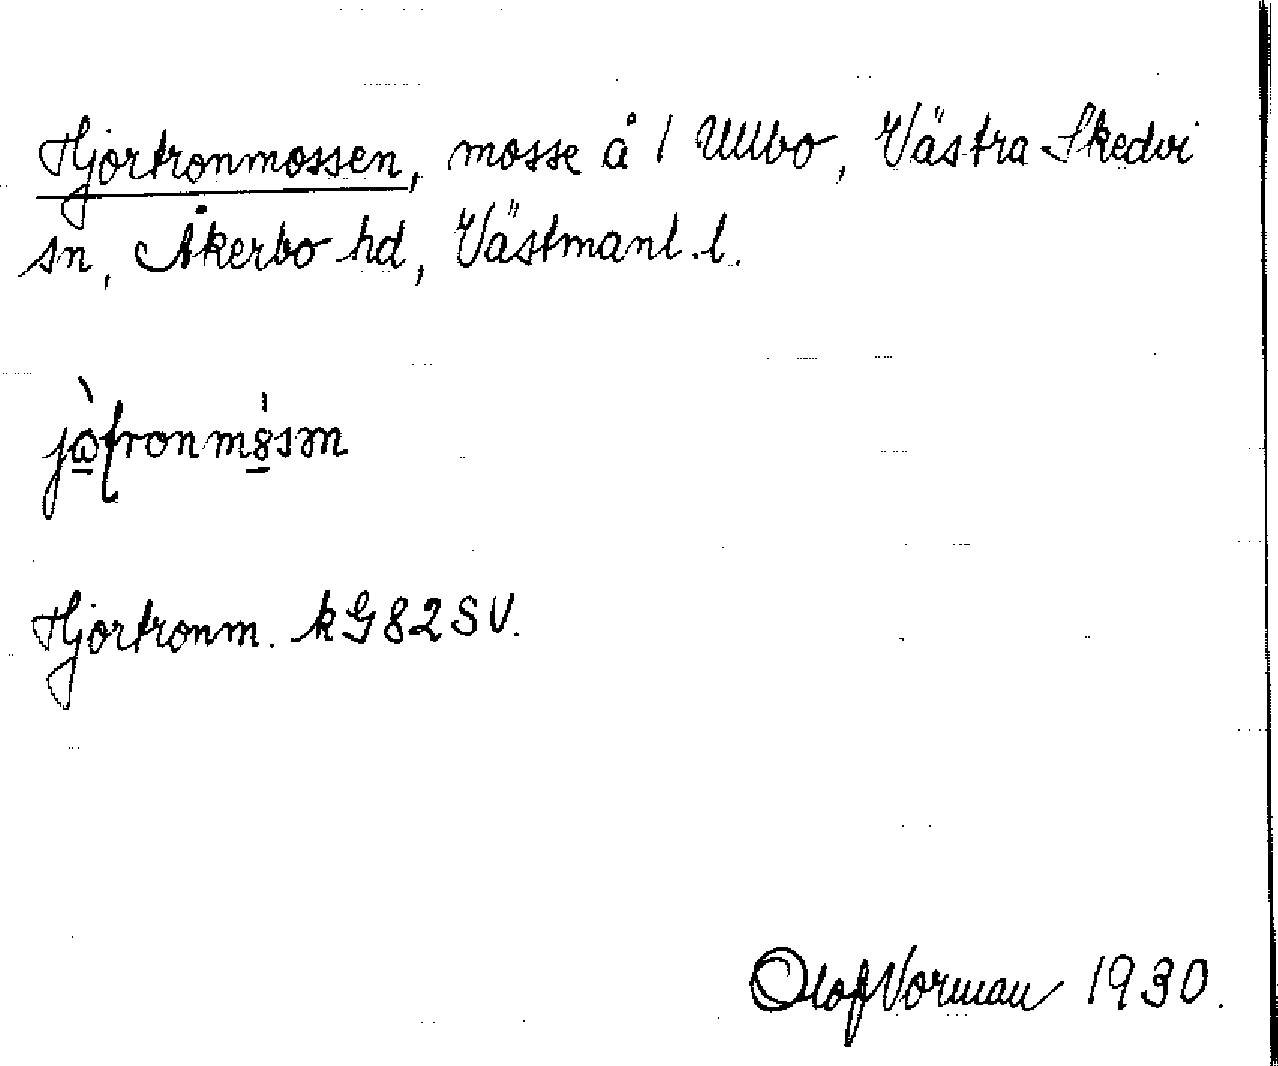 Hjortronmossen, mosse å 1 Ullbo, Västra Skedvi
sn, Åkerbo hd, Västmanl. l.
Hjortronm. kG82SV.
Olof Vorman 1930.